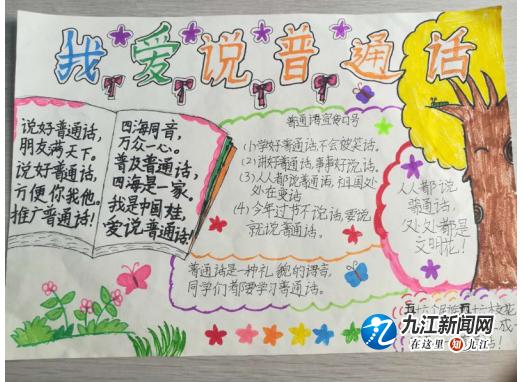 我爱说普通话
说好普通话,
朋友满天下。
说好普通话,
方便你我他。
推广普通话!
四海同音,
万众一心。
普及普通话,
四海是一家。
我是中国娃,
爱说普通话!
普通话宣传口号
(1)学好普通话,不会被笑话。
(2)讲好普通话,事事好说话。
(3)人人都说普通话,祖国处
处在变话
(4)今年过节不说话,要说
就说普通话。
人人都说
普通话,
处处都是
文明花!
普通话是一种礼貌的语言,
同学们都要学习普通话。
五十六个民族五十六枝花
九江新闻网
在这里知九江